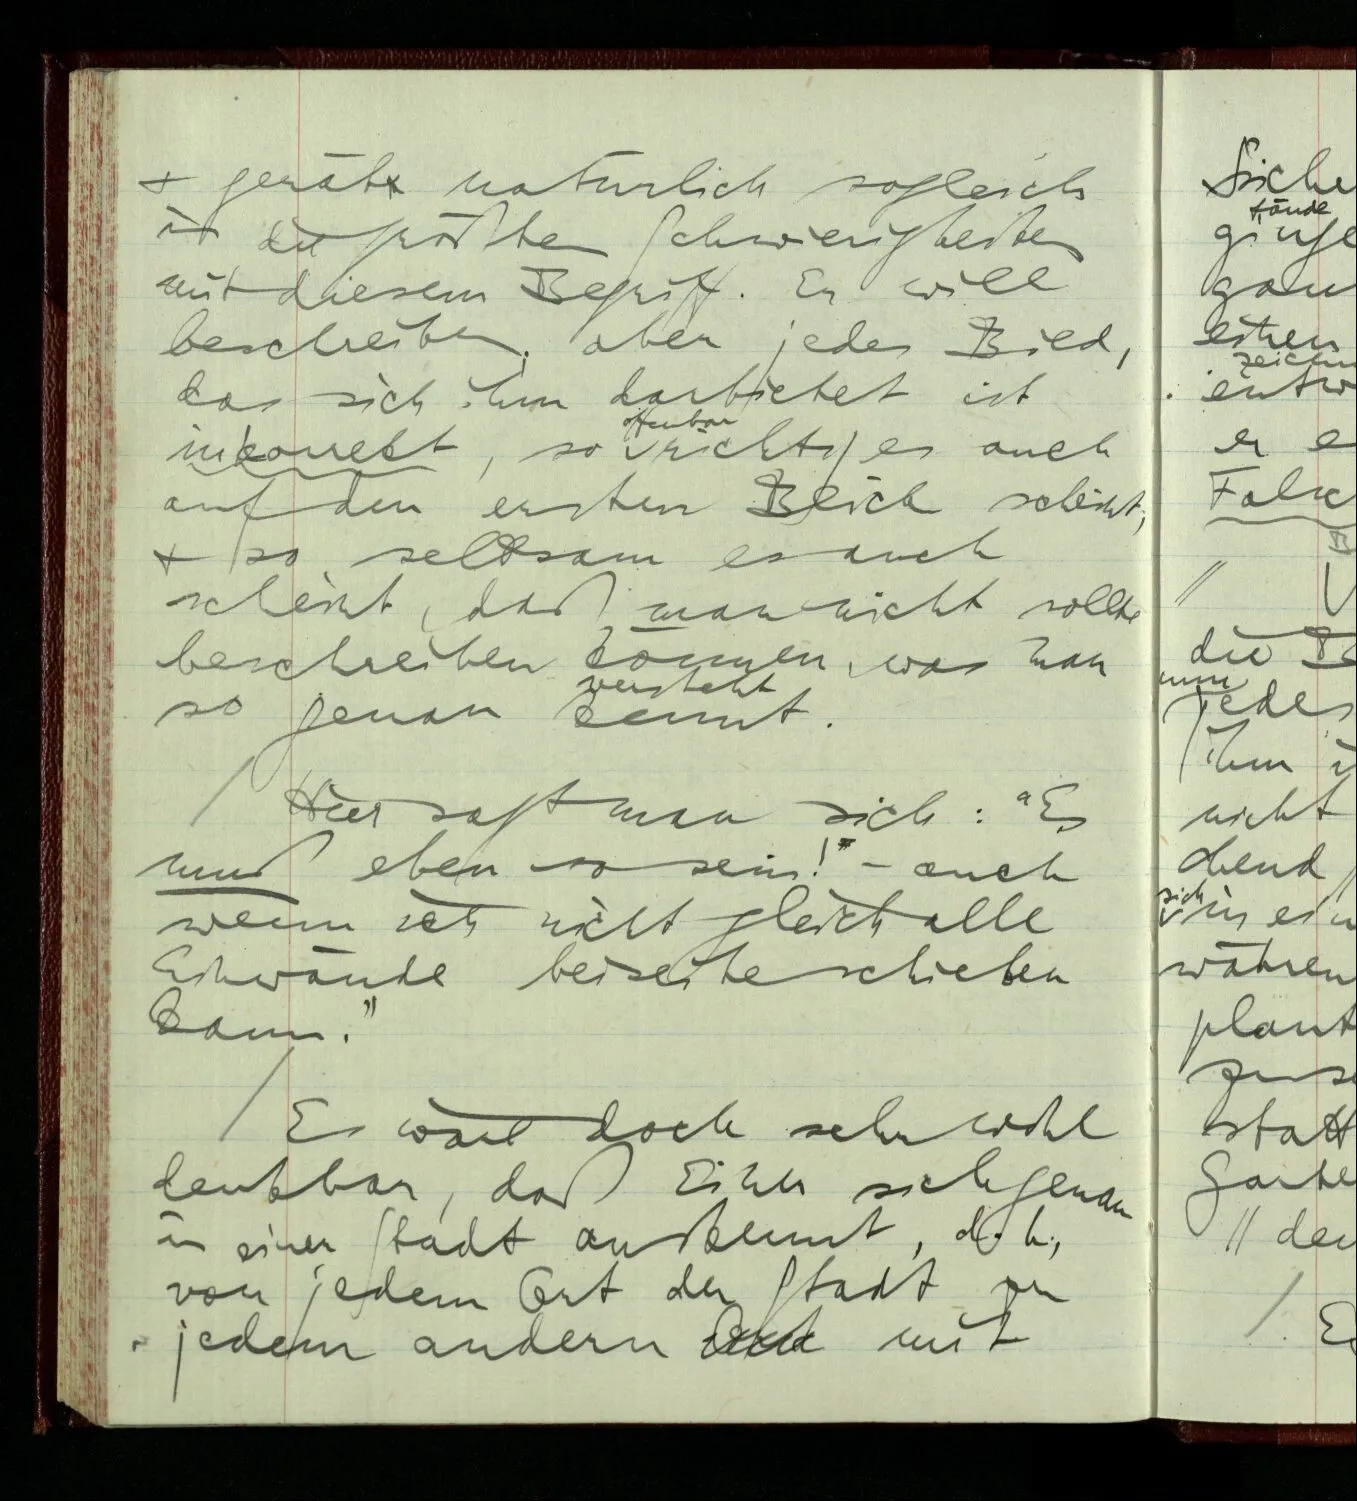 + gerät natürlich sogleich
in die größten Schwierigkeiten
mit diesem Begriff. Er will
beschreiben, aber jedes Bild,
das sich ihm darbietet ist
offenbar
inkorrekt, so richtig es auch
auf den ersten Blick scheint,
+ so seltsam es auch
scheint, daß man nicht sollte
beschreiben können, was man
versteht
so genau kennt.
/ Hier sagt man sich: "Es
muß eben so sein!" – auch
wenn ich nicht gleich alle
Einwände beiseite schieben
kann."
/ Es wäre doch sehr wohl
denkbar, daß Einer sich genau
in einer Stadt auskennt, d.h.,
von jedem Ort der Stadt zu
jedem andern mit
Siche
stände
ginge
gan
einen
zeichn
entw
er e
Falsc
//
die Be
nun
jedes
ihm i
nicht
chend
sich
in ein
währen
plant
zuse
statt
Garte
// den
/. Es